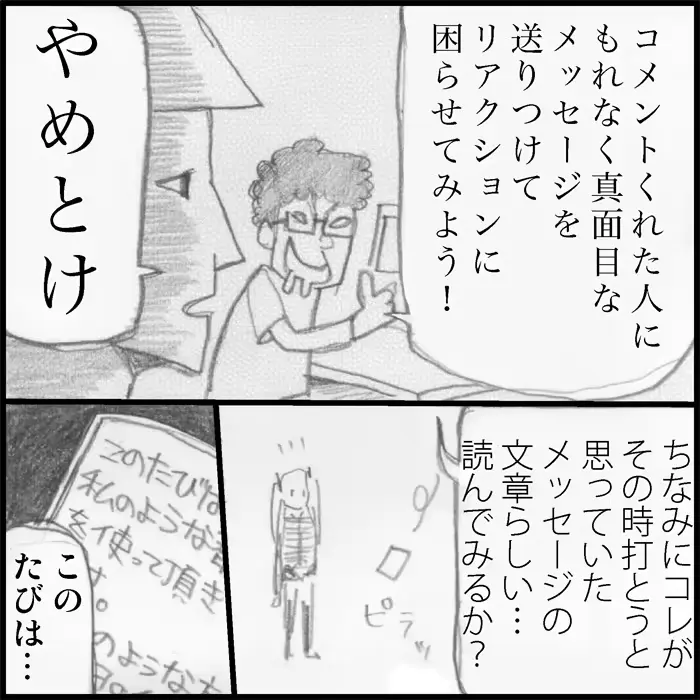 コメントくれた人に
もれなく真面目な
メッセージを
送りつけて
リアクションに
困らせてみよう！
やめとけ
ちなみにコレが
その時打とうと
思っていた
メッセージの
文章らしい…
読んでみるか？
ピラッ
このたびは
私のような
を使って頂き
。
のような
このたびは…